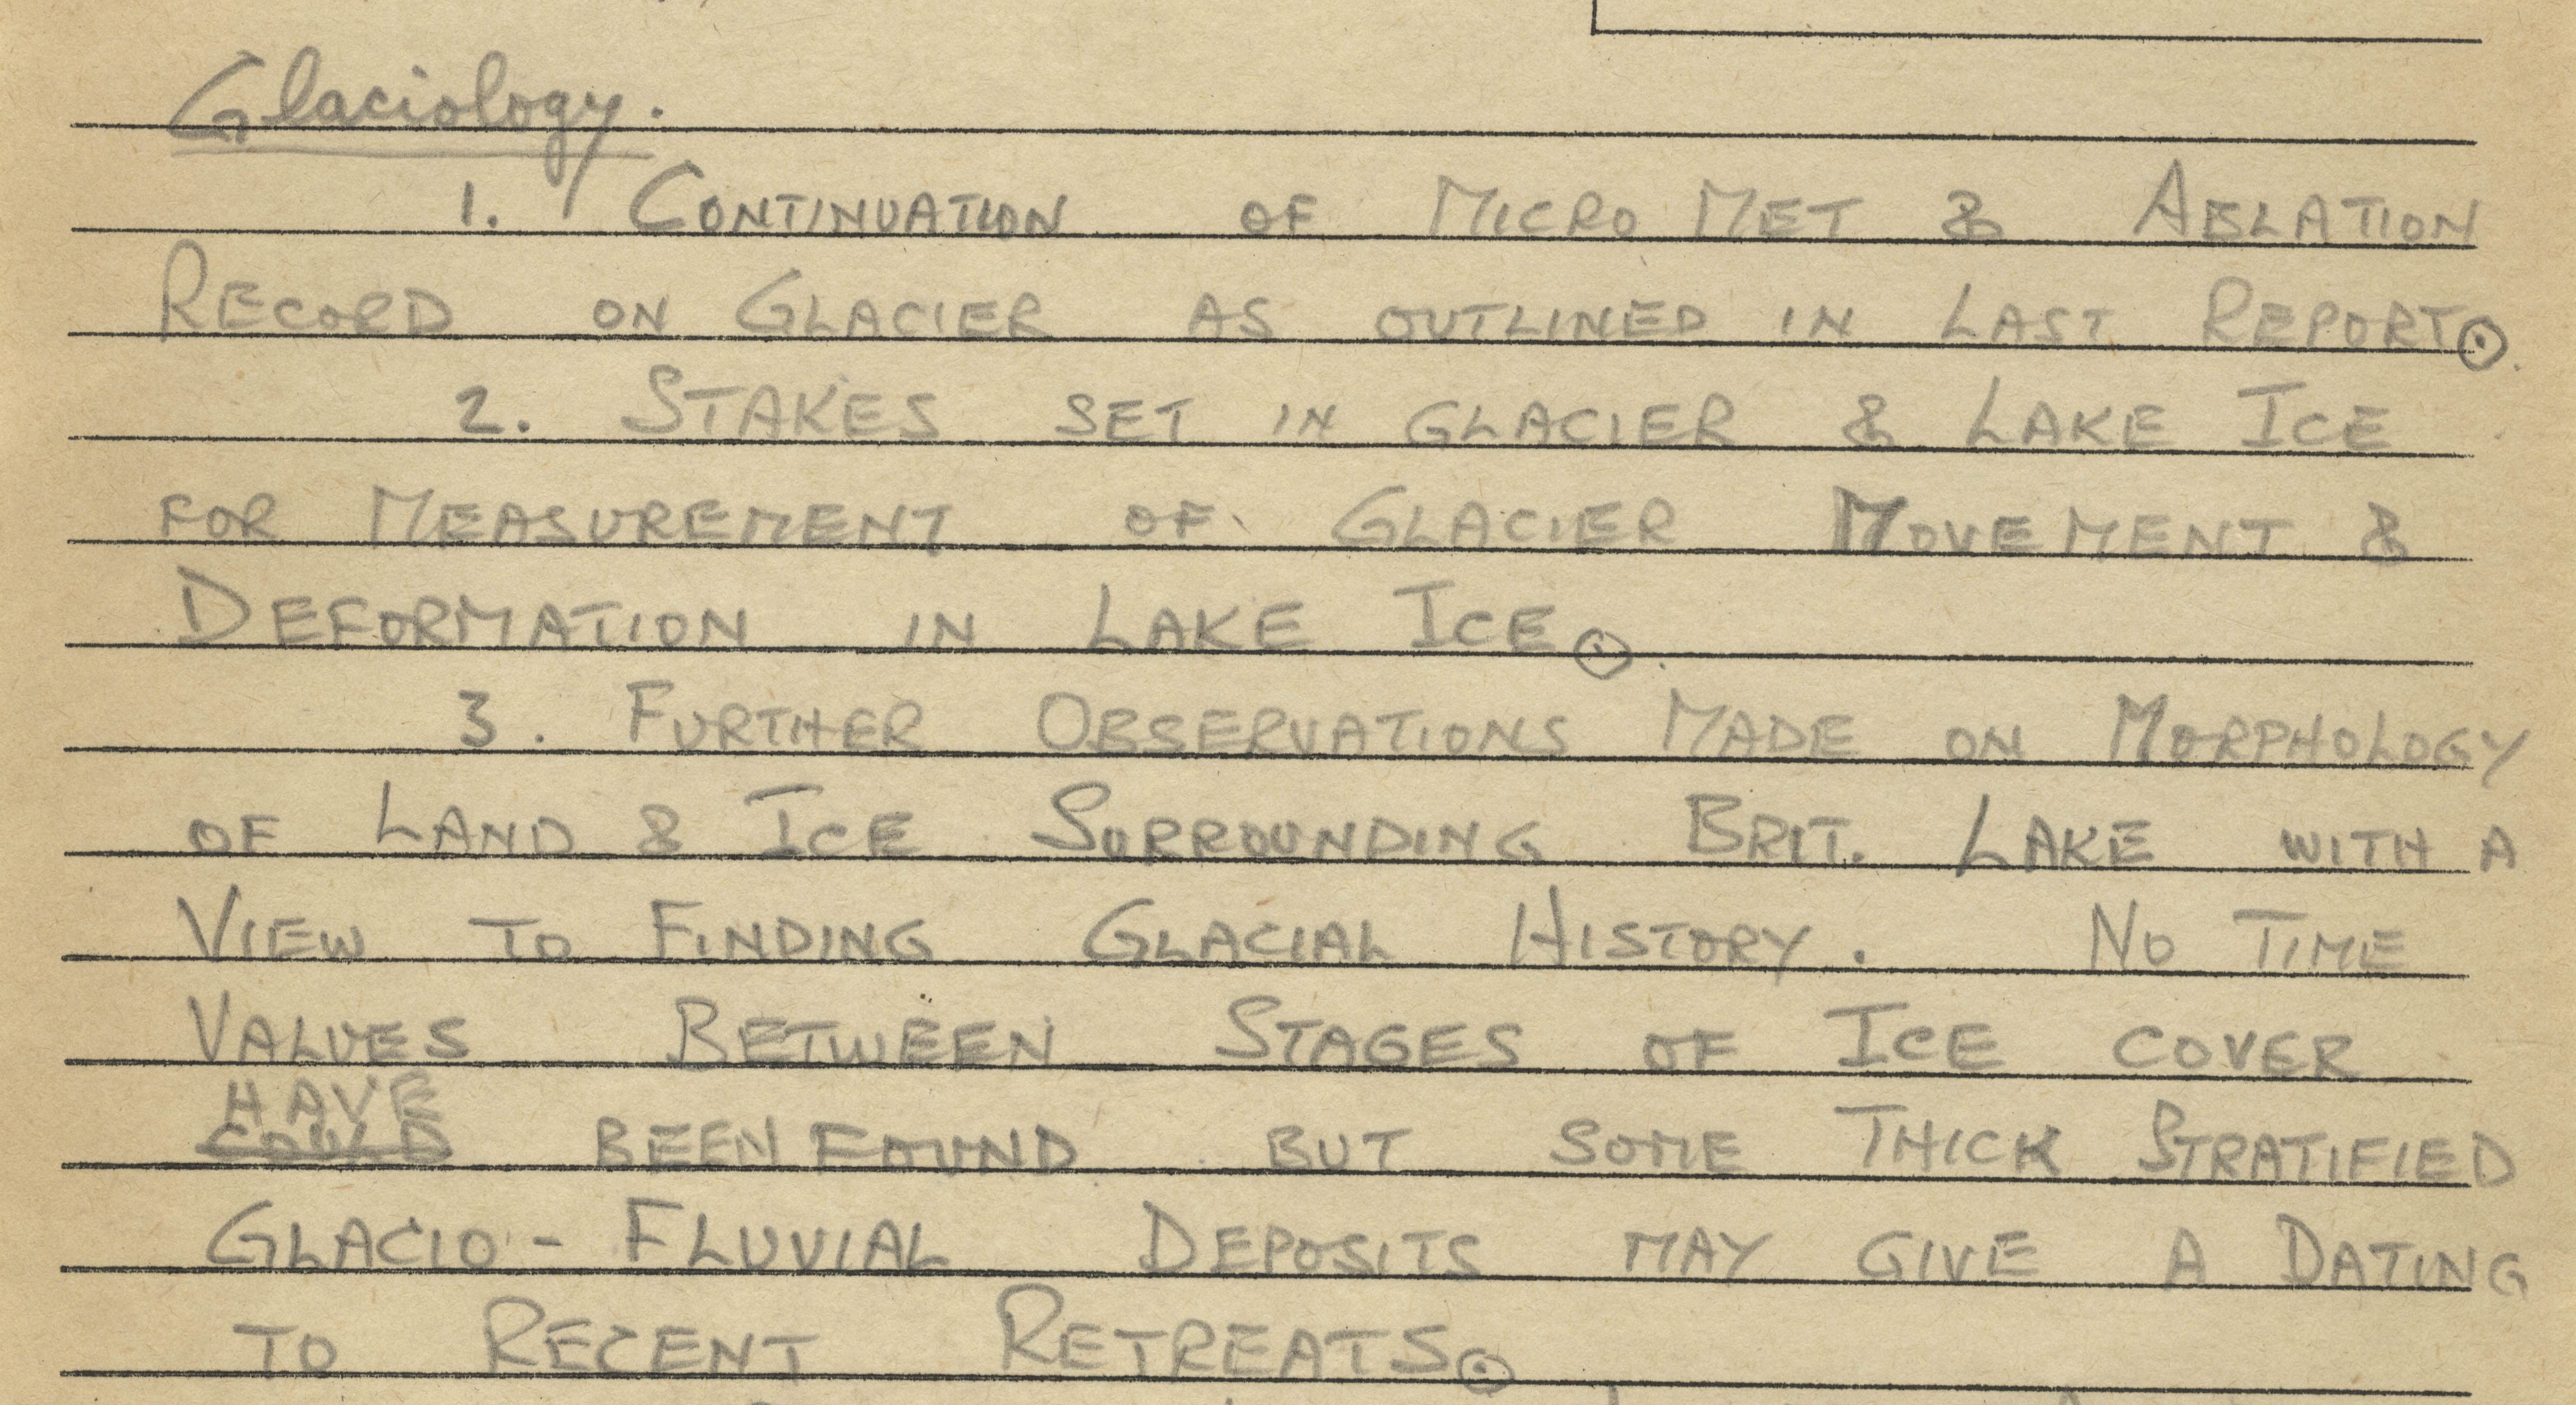 Glaciology.
1. CONTINUATION OF MICRO MET & ABLATION
RECORD ON GLACIER AS OUTLINED IN LAST REPORT⊙.
2. STAKES SET IN GLACIER & LAKE ICE
FOR MEASUREMENT OF GLACIER MOVEMENT &
DEFORMATION IN LAKE ICE⊙.
3. FURTHER OBSERVATIONS MADE ON MORPHOLOGY
OF LAND & ICE SURROUNDING BRIT. LAKE WITH A
VIEW TO FINDING GLACIAL HISTORY. NO TIME
VALUES BETWEEN STAGES OF ICE COVER
HAVE
COULD BEEN FOUND BUT SOME THICK STRATIFIED
GLACIO - FLUVIAL DEPOSITS MAY GIVE A DATING
TO RECENT RETREATS⊙